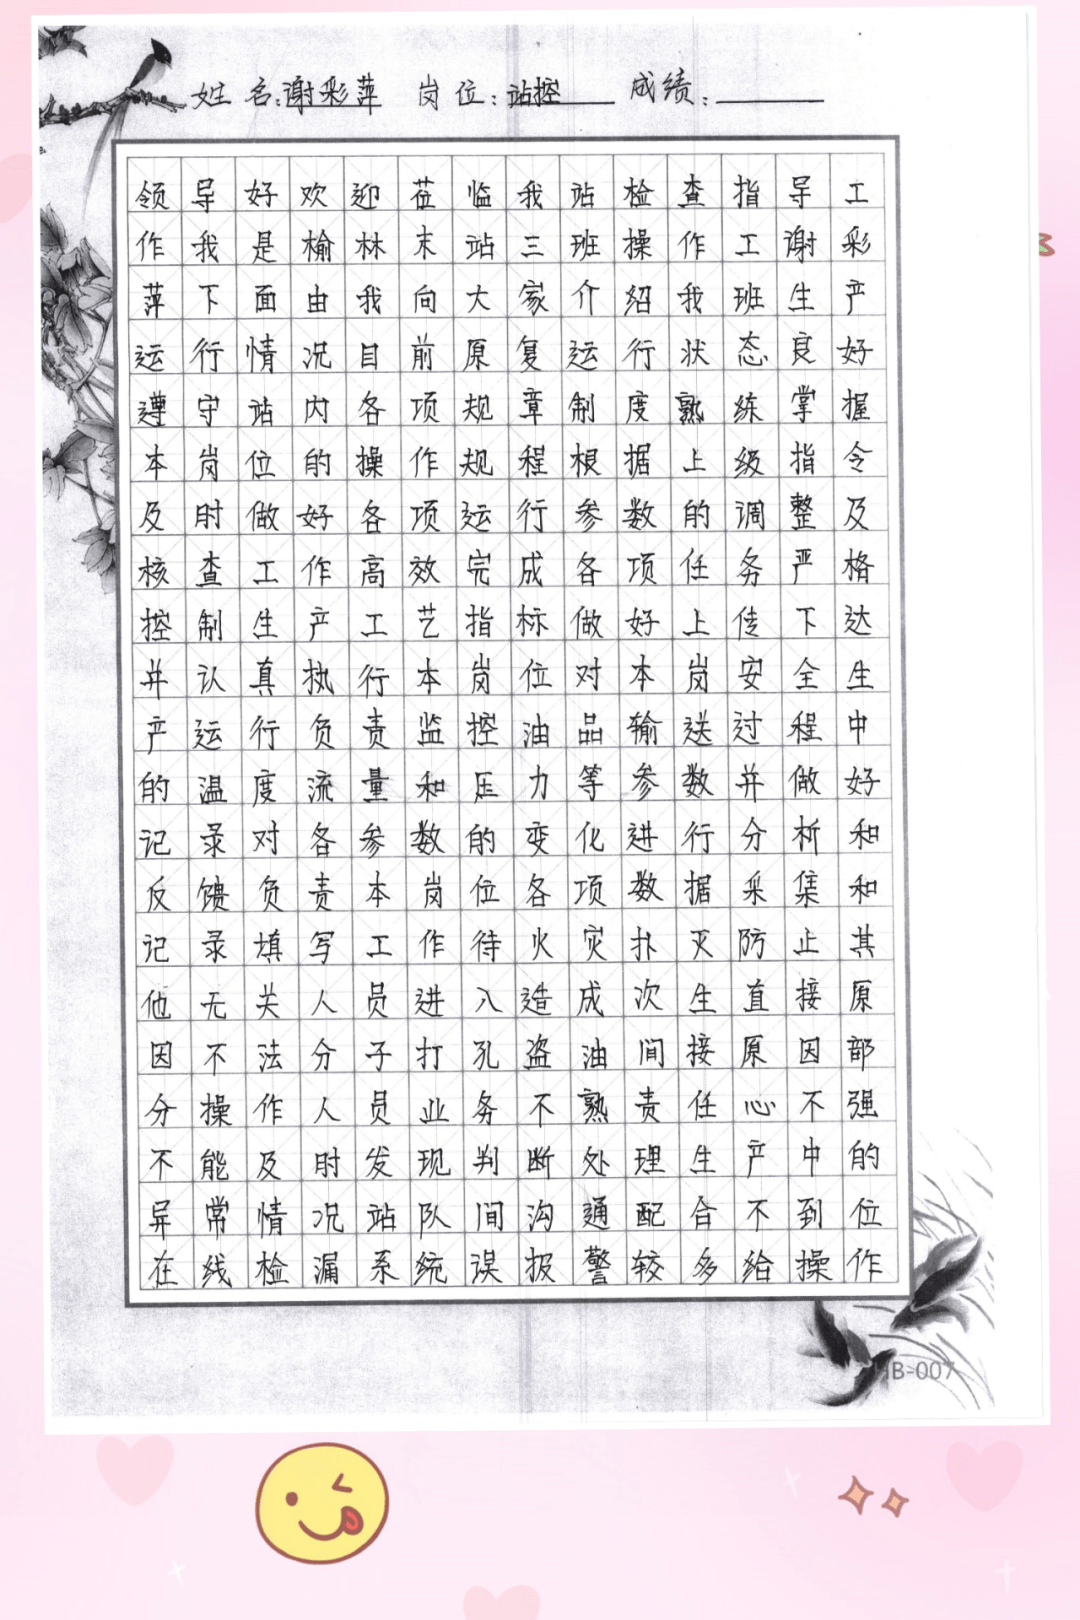 姓名:谢彩萍 岗位:站控 成绩:
领导好欢迎莅临我站检查指导工
作我是榆林末站三班操作工谢彩
萍下面由我向大家介绍我班生产
运行情况目前原复运行状态良好
遵守站内各项规章制度熟练掌握
本岗位的操作规程根据上级指令
及时做好各项运行参数的调整及
核查工作高效完成各项任务严格
控制生产工艺指标做好上传下达
并认真执行本岗位对本岗安全生
产运行负责监控油品输送过程中
的温度流量和压力等参数并做好
记录对各参数的变化进行分析和
反馈负责本岗位各项数据采集和
记录填写工作待火灾扑灭防止其
他无关人员进入造成次生直接原
因不法分子打孔盗油间接原因部
分操作人员业务不熟责任心不强
不能及时发现判断处理生产中的
异常情况站队间沟通配合不到位
在线检漏系统误报警较多给操作
HB-007